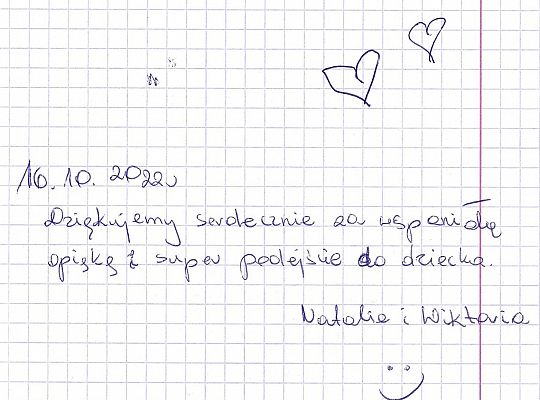 16.10.2022r
Dziękujemy serdecznie za wspaniałą
opiękę i super podejście do dziecka.
Natalia i Wiktoria